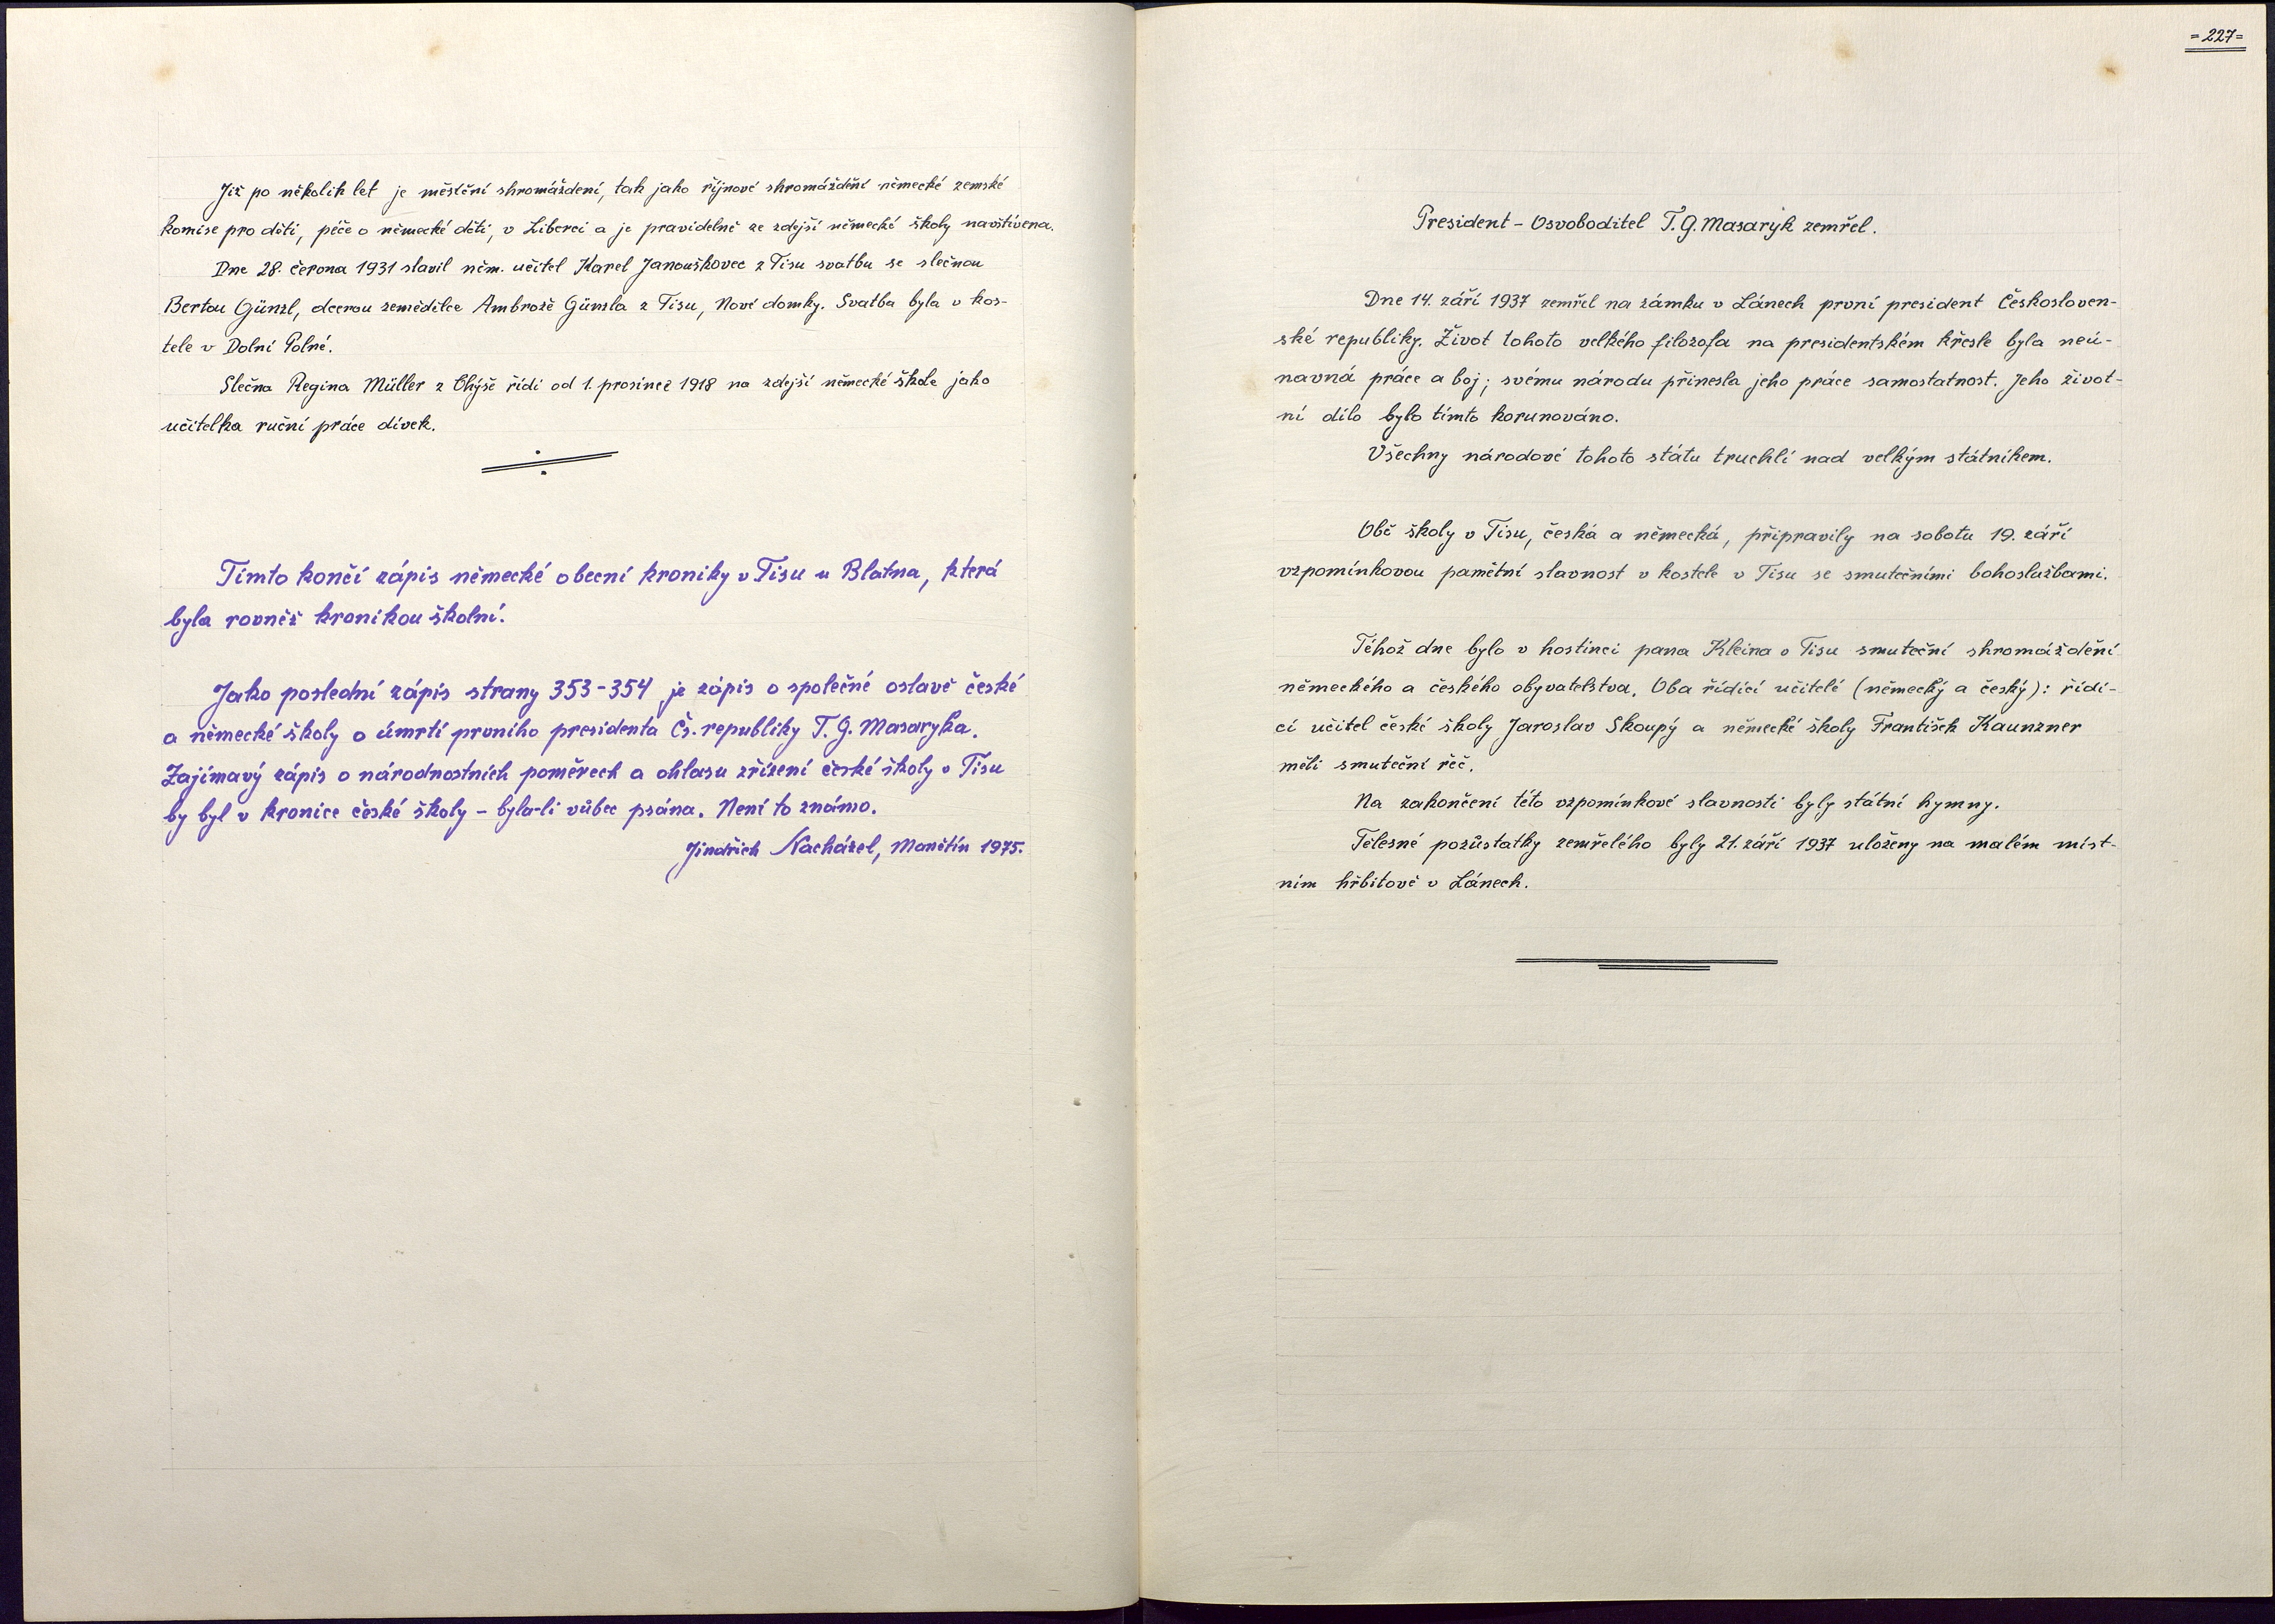 Již po několik let je měsíční shromáždení, tak jako říjnové shromáždění německé zemské
komise pro děti, péče o německé děti, v Liberci a je pravidelně ze zdejší německé školy navštívena.
Dne 28. června 1931 slavil něm. učitel Karel Janouškovec z Tisu svatbu se slečnou
Bertou Günzl, dcerou zemědělce Ambrože Günzla z Tisu, Nové domky. Svatba byla v kos-
tele v Dolní Polné.
Slečna Regina Müller z Chýše řídí od 1. prosince 1918 na zdejší německé škole jako
učitelka ruční práce dívek.
Tímto končí zápis německé obecní kroniky v Tisu u Blatna, která
byla rovněž kronikou školní.
Jako poslední zápis strany 353-354 je zápis o společné oslavě české
a německé školy o úmrtí prvního presidenta Čs. republiky T. G. Masaryka.
Zajímavý zápis o národnostních poměrech a ohlasu zřízení české školy v Tisu
by byl v kronice české školy - byla-li vůbec psána. Není to známo.
Jindřich Nacházel, Manětín 1975.
= 227 =
President - Osvoboditel T. G. Masaryk zemřel.
Dne 14. září 1937 zemřel na zámku v Lánech první president Českosloven-
ské republiky. Život tohoto velkého filozofa na presidentském křesle byla neú-
navná práce a boj; svému národu přinesla jeho práce samostatnost. Jeho život-
ní dílo bylo tímto korunováno.
Všechny národové tohoto státu truchlí nad velkým státníkem.
Obě školy v Tisu, česká a německá, připravily na sobotu 19. září
vzpomínkovou pamětní slavnost v kostele v Tisu se smutečními bohoslužbami.
Téhož dne bylo v hostinci pana Kleina v Tisu smuteční shromáždění
německého a českého obyvatelstva. Oba řídící učitelé (německý a český): řídí-
cí učitel české školy Jaroslav Skoupý a německé školy František Kaunzner
měli smuteční řeč.
Na zakončení této vzpomínkové slavnosti byly státní hymny.
Tělesné pozůstatky zemřelého byly 21. září 1937 uloženy na malém míst-
ním hřbitově v Lánech.